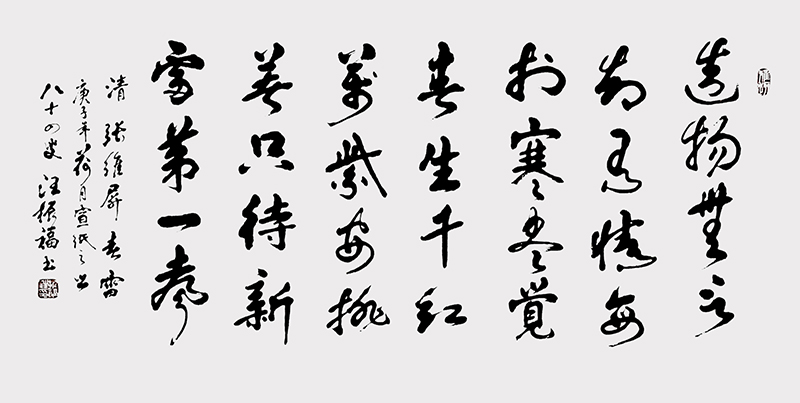 造物無言
却有情每
於寒尽覺
春生千红
萬紫安排
著只待新
雷第一聲
清 張維屏 春雷
庚子年荷月宣纸之上
八十四叟 汪振福书